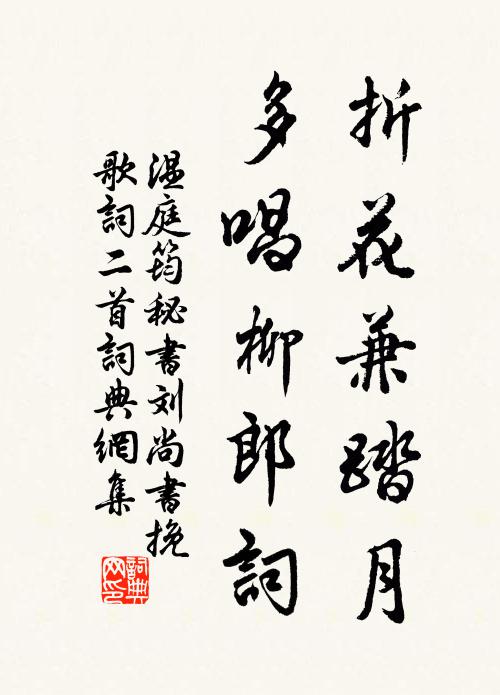 折花兼踏月
多唱柳郎詞
温庭筠秘書刘尚書挽
歌詞二首詞典網集
詞典网印